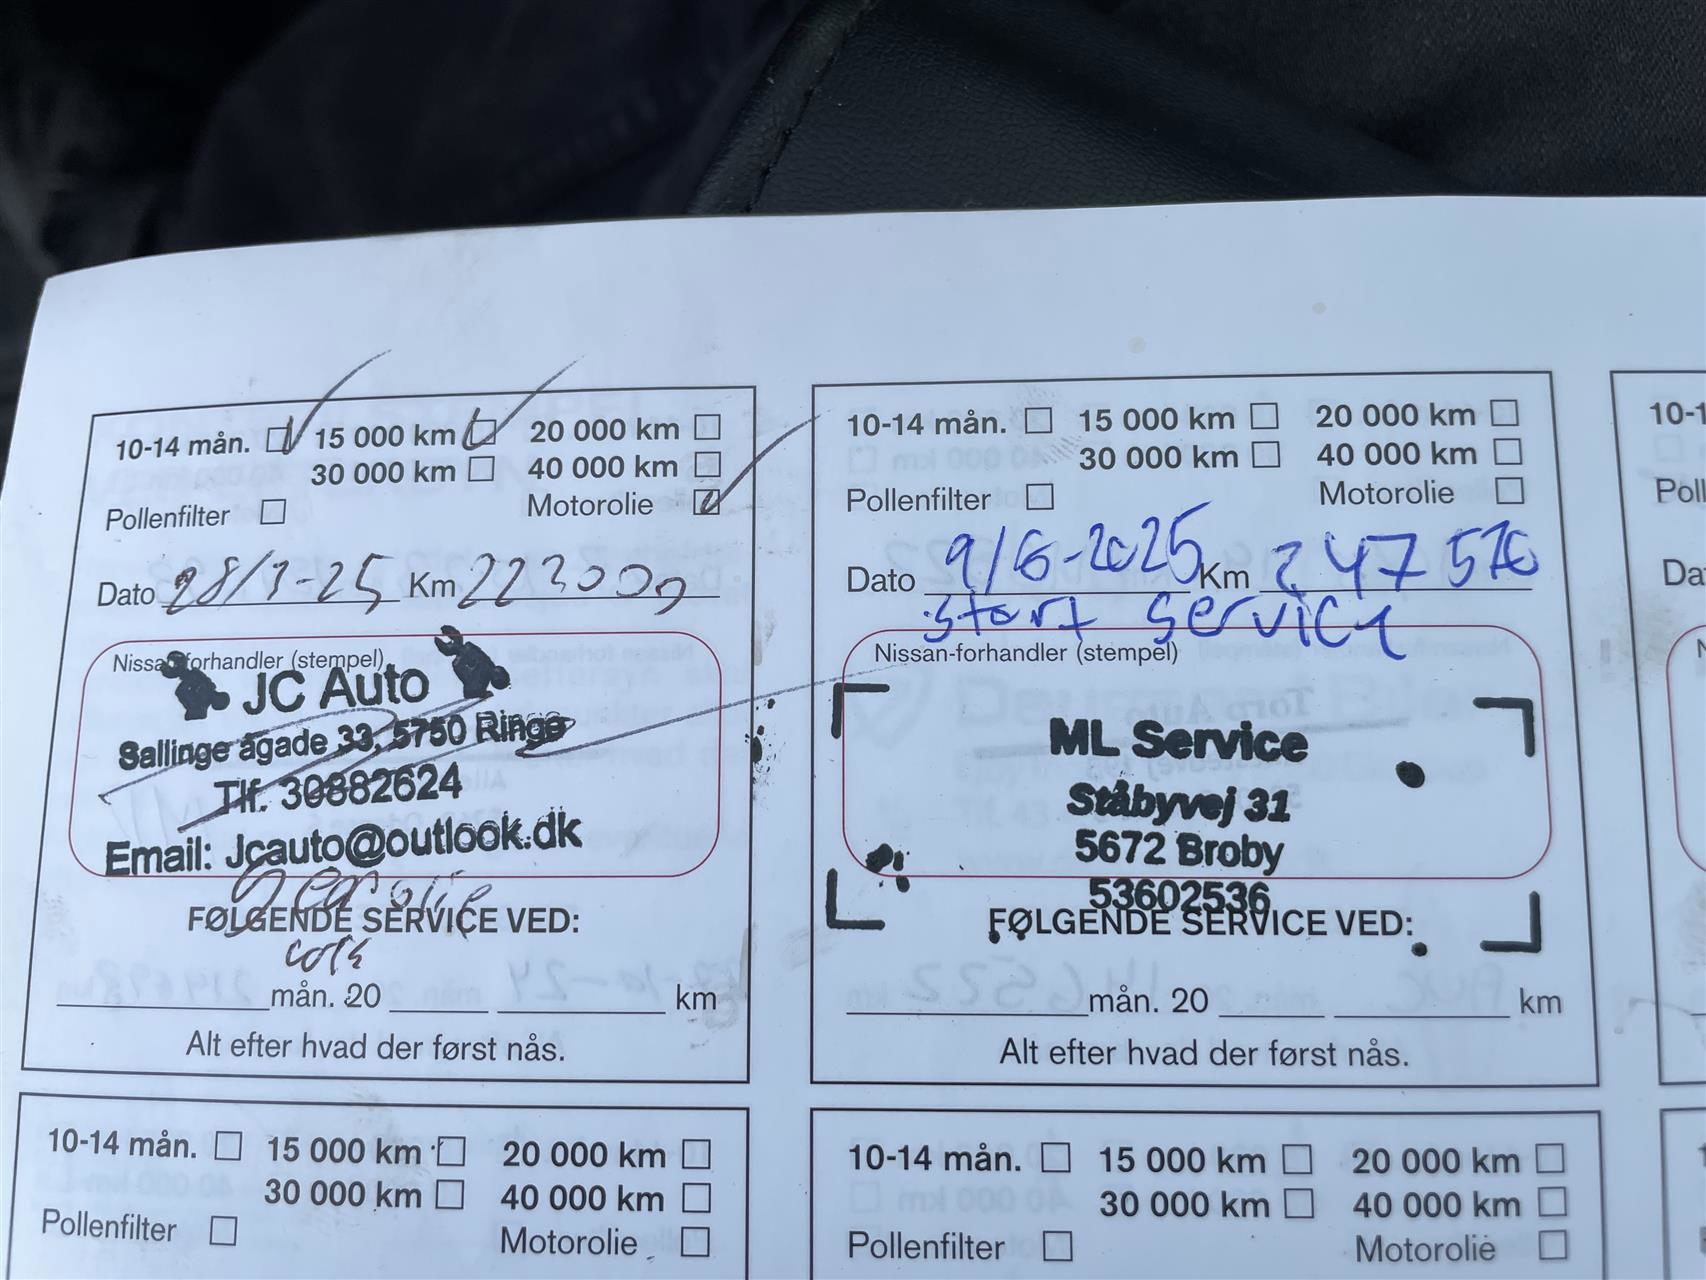 10-14 mån. 15 000 km 20 000 km
30 000 km 40 000 km
Pollenfilter Motorolie
Dato 28/1-25 Km 223000
Nissan-forhandler (stempel)
JC Auto
Sallinge ågade 33, 5750 Ringe
Tlf. 30882624
Email: Jcauto@outlook.dk
Gear olie
FØLGENDE SERVICE VED:
mån. 20 km
Alt efter hvad der først nås.
10-14 mån. 15 000 km 20 000 km
30 000 km 40 000 km
Pollenfilter Motorolie
Dato 9/6-2025 Km 247 570
Start service
Nissan-forhandler (stempel)
ML Service
Ståbyvej 31
5672 Broby
53602536
FØLGENDE SERVICE VED:
mån. 20 km
Alt efter hvad der først nås.
10-1
Poll
Da
10-14 mån. 15 000 km 20 000 km
30 000 km 40 000 km
Pollenfilter Motorolie
10-14 mån. 15 000 km 20 000 km
30 000 km 40 000 km
Pollenfilter Motorolie